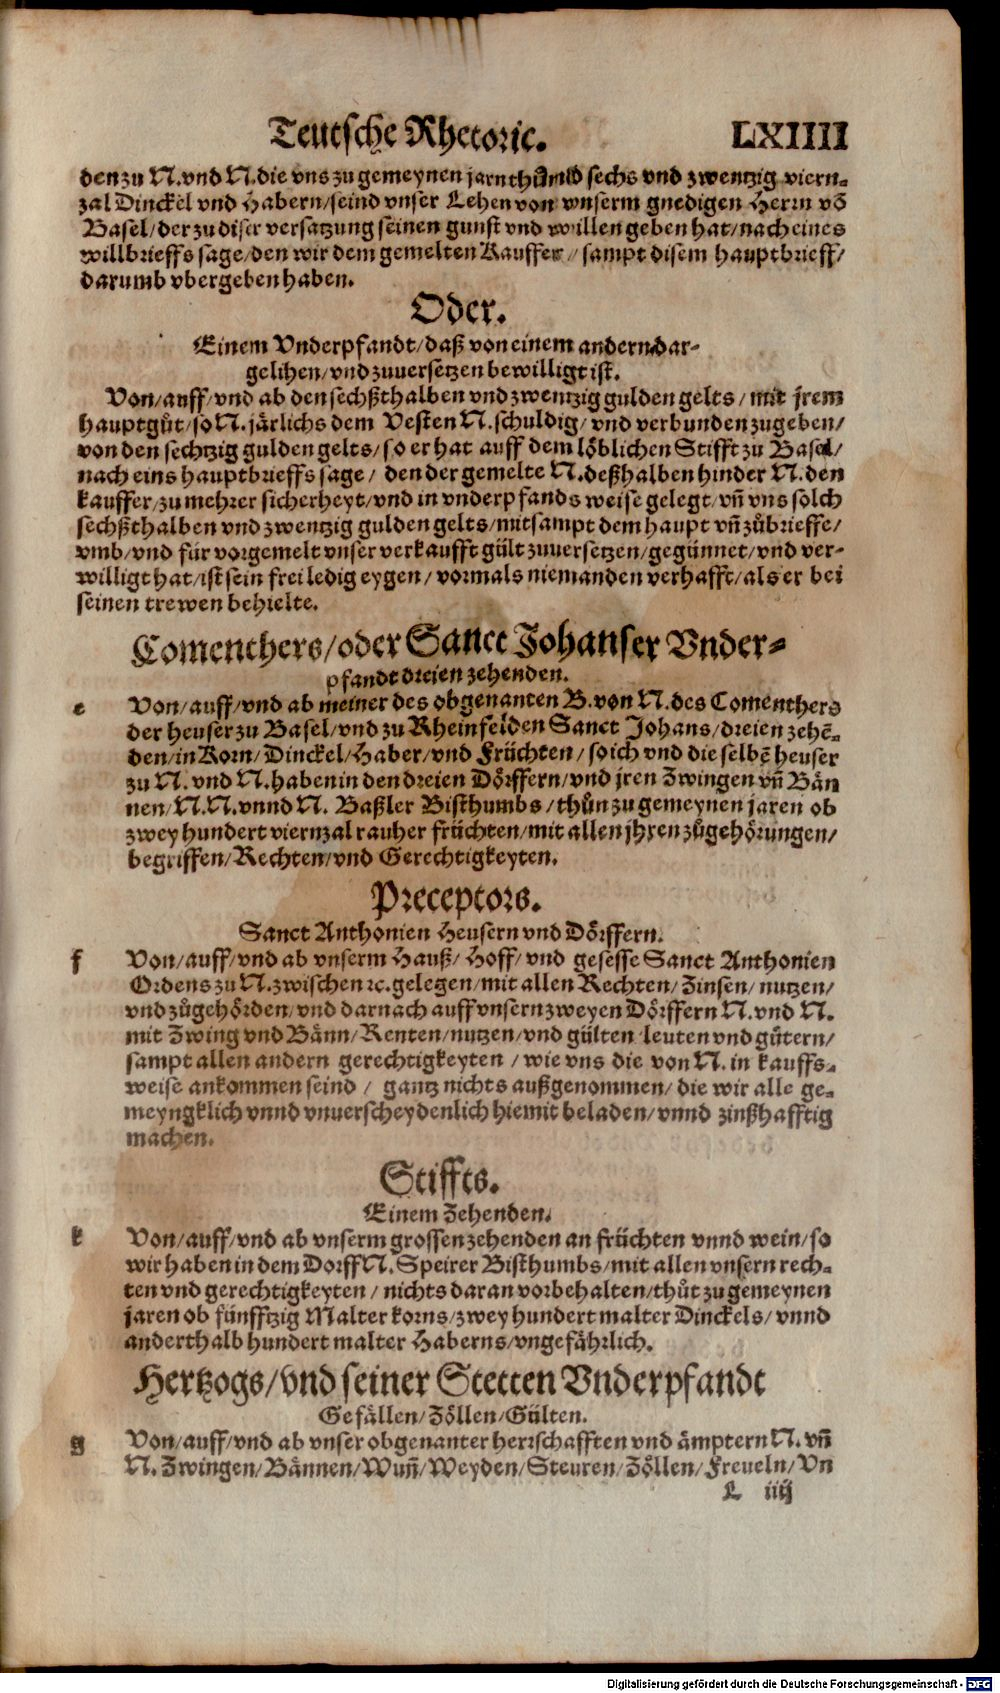 Teutsche Rhetoric. LXIIII
den zu N. vnd N. die vns zu gemeynen jarn thůnd sechs vnd zwentzig viern-
zal Dinckel vnd Habern/ seind vnser Lehen von vnserm gnedigen Herrn võ
Basel/ der zu diser versatzung seinen gunst vnd willen geben hat/ nach eines
willbrieffs sage/ den wir dem gemelten Kauffer/ sampt disem hauptbrieff/
darumb vbergeben haben.
Oder.
Einem Vnderpfandt/ daß von einem andern dar-
gelihen/ vnd zuuersetzen bewilligt ist.
Von/ auff/ vnd ab den sechßthalben vnd zwentzig gulden gelts/ mit jrem
hauptgůt/ so N. järlichs dem Vesten N. schuldig/ vnd verbunden zugeben/
von den sechtzig gulden gelts/ so er hat auff dem löblichen Stifft zu Basel/
nach eins hauptbrieffs sage/ den der gemelte N. deßhalben hinder N. den
kauffer/ zu mehrer sicherheyt/ vnd in vnderpfands weise gelegt/ vñ vns solch
sechßthalben vnd zwentzig gulden gelts/ mitsampt dem haupt vñ zůbrieffe/
vmb/ vnd für vorgemelt vnser verkaufft gült zuuersetzen/ gegünnet/ vnd ver-
willigt hat/ ist sein frei ledig eygen/ vormals niemanden verhafft/ als er bei
seinen trewen behielte.
Comenthers/ oder Sanct Johanser Vnder-
pfandt dreien zehenden.
e Von/ auff/ vnd ab meiner des obgenanten B. von N. des Comenthers
der heuser zu Basel/ vnd zu Rheinfelden Sanct Johans/ dreien zehẽ-
den/ in Korn/ Dinckel/ Haber/ vnd Früchten/ so ich vnd die selbẽ heuser
zu N. vnd N. haben in den dreien Dörffern/ vnd jren Zwingen vñ Bän
nen/ N. N. vnnd N. Baßler Bisthumbs/ thůn zu gemeynen jaren ob
zwey hundert viernzal rauher früchten/ mit allen jhren zůgehörungen/
begriffen/ Rechten/ vnd Gerechtigkeyten.
Preceptors.
Sanct Anthonien Heusern vnd Dörffern.
f Von/ auff/ vnd ab vnserm Hauß/ Hoff/ vnd gesesse Sanct Anthonien
Ordens zu N. zwischen ꝛc. gelegen/ mit allen Rechten/ Zinsen/ nutzen/
vnd zůgehörden/ vnd darnach auff vnsern zweyen Dörffern N. vnd N.
mit Zwing vnd Bänn/ Renten/ nutzen/ vnd gülten leuten vnd gütern/
sampt allen andern gerechtigkeyten/ wie vns die von N. in kauffs-
weise ankommen seind/ gantz nichts außgenommen/ die wir alle ge-
meyngklich vnnd vnuerscheydenlich hiemit beladen/ vnnd zinßhafftig
machen.
Stiffts.
Einem Zehenden.
k Von/ auff/ vnd ab vnserm grossen zehenden an früchten vnnd wein/ so
wir haben in dem Dorff N. Speirer Bisthumbs/ mit allen vnsern rech-
ten vnd gerechtigkeyten/ nichts daran vorbehalten/ thůt zu gemeynen
jaren ob fünfftzig Malter korns/ zwey hundert malter Dinckels/ vnnd
anderthalb hundert malter Haberns/ vngefährlich.
Hertzogs/ vnd seiner Stetten Vnderpfandt
Gefällen/ Zöllen/ Gülten.
g Von/ auff/ vnd ab vnser obgenanter herrschafften vnd ämptern N. vñ
N. Zwingen/ Bännen/ Wuñ/ Weyden/ Steuren/ Zöllen/ Freueln/ Vn
L iiij
Digitalisierung gefördert durch die Deutsche Forschungsgemeinschaft - DFG